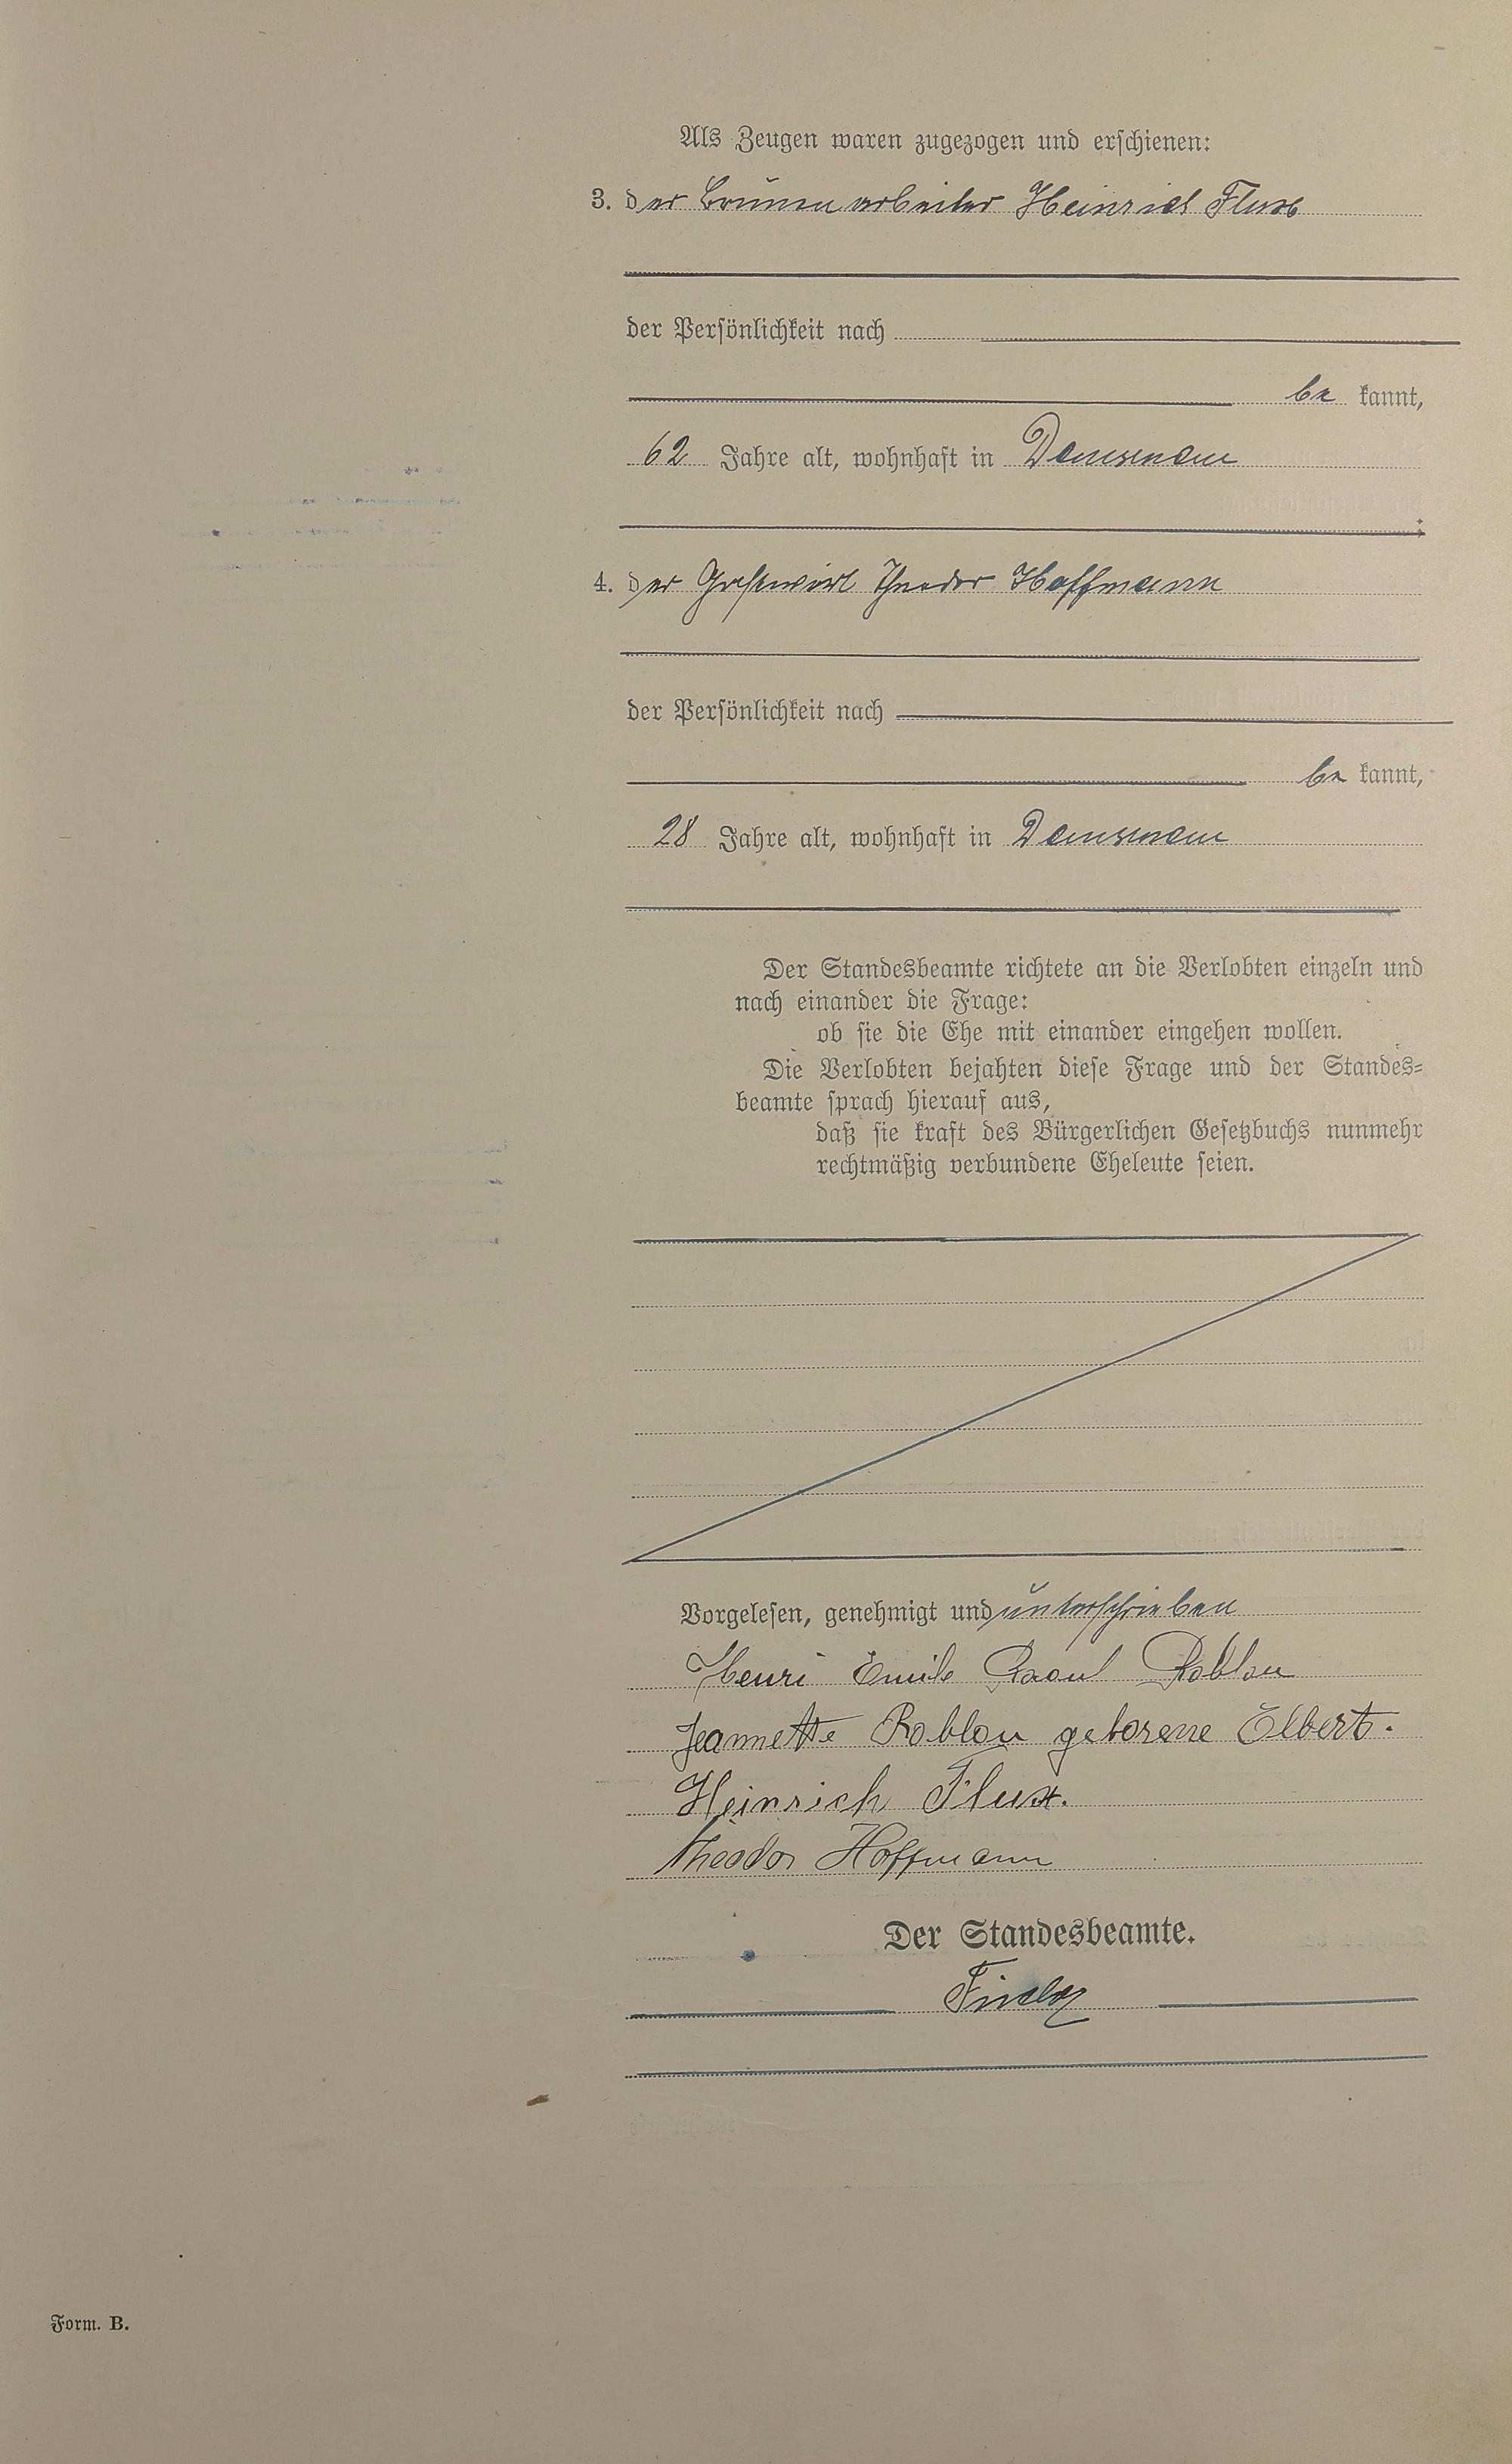 Als Zeugen waren zugezogen und erschienen:
3. der Brunnenarbeiter Heinrich Flux
der Persönlichkeit nach
be kannt,
62 Jahre alt, wohnhaft in
;
4. der Gastwirt Theodor Hoffmann
der Persönlichkeit nach
be kannt,
28 Jahre alt, wohnhaft in
Der Standesbeamte richtete an die Verlobten einzeln und
nach einander die Frage:
ob sie die Ehe mit einander eingehen wollen.
Die Verlobten bejahten diese Frage und der Standes-
beamte sprach hierauf aus,
daß sie kraft des Bürgerlichen Gesetzbuchs nunmehr
rechtmäßig verbundene Eheleute seien.
Vorgelesen, genehmigt und unterschrieben
Henri Emile Raoul Roblou
Jeannette Roblou geborene Elbert.
Heinrich Flux.
Theodor Hoffmann
Der Standesbeamte.
Form. B.